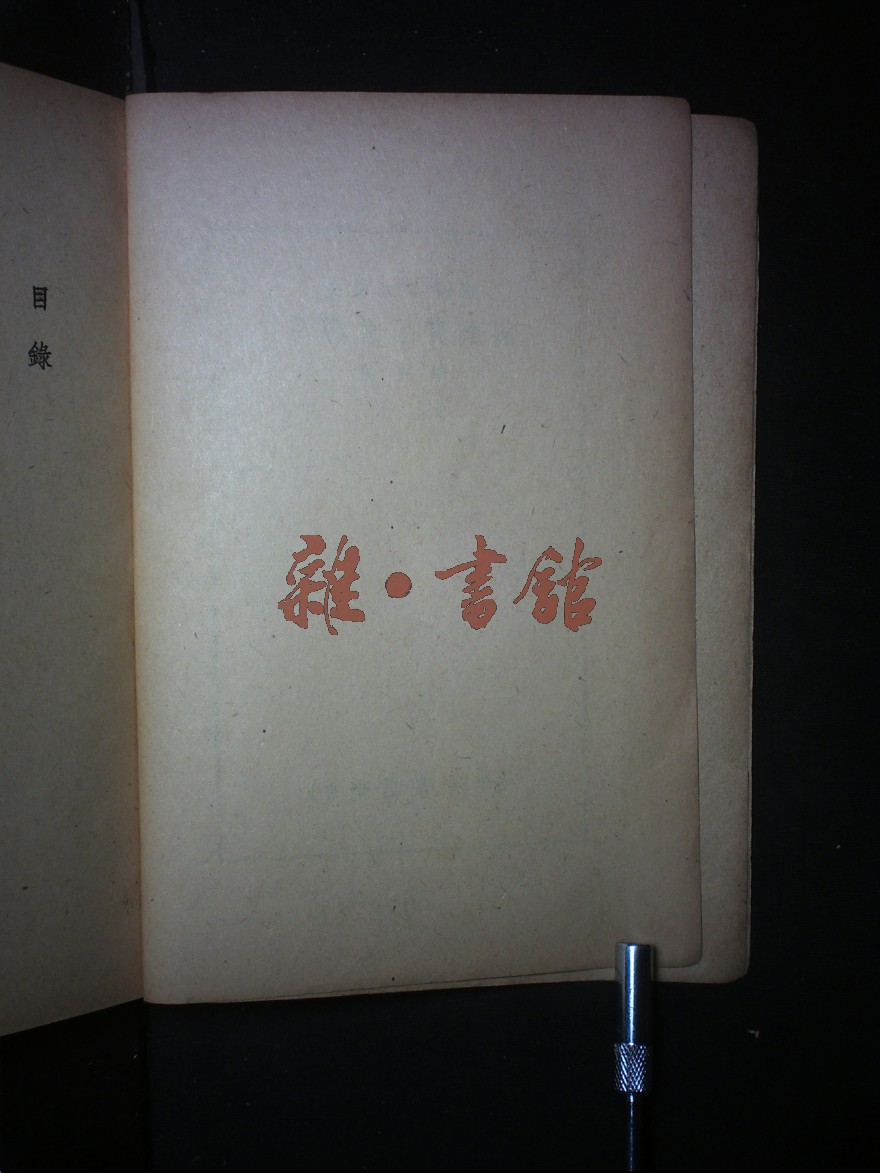 目錄
雜·書館